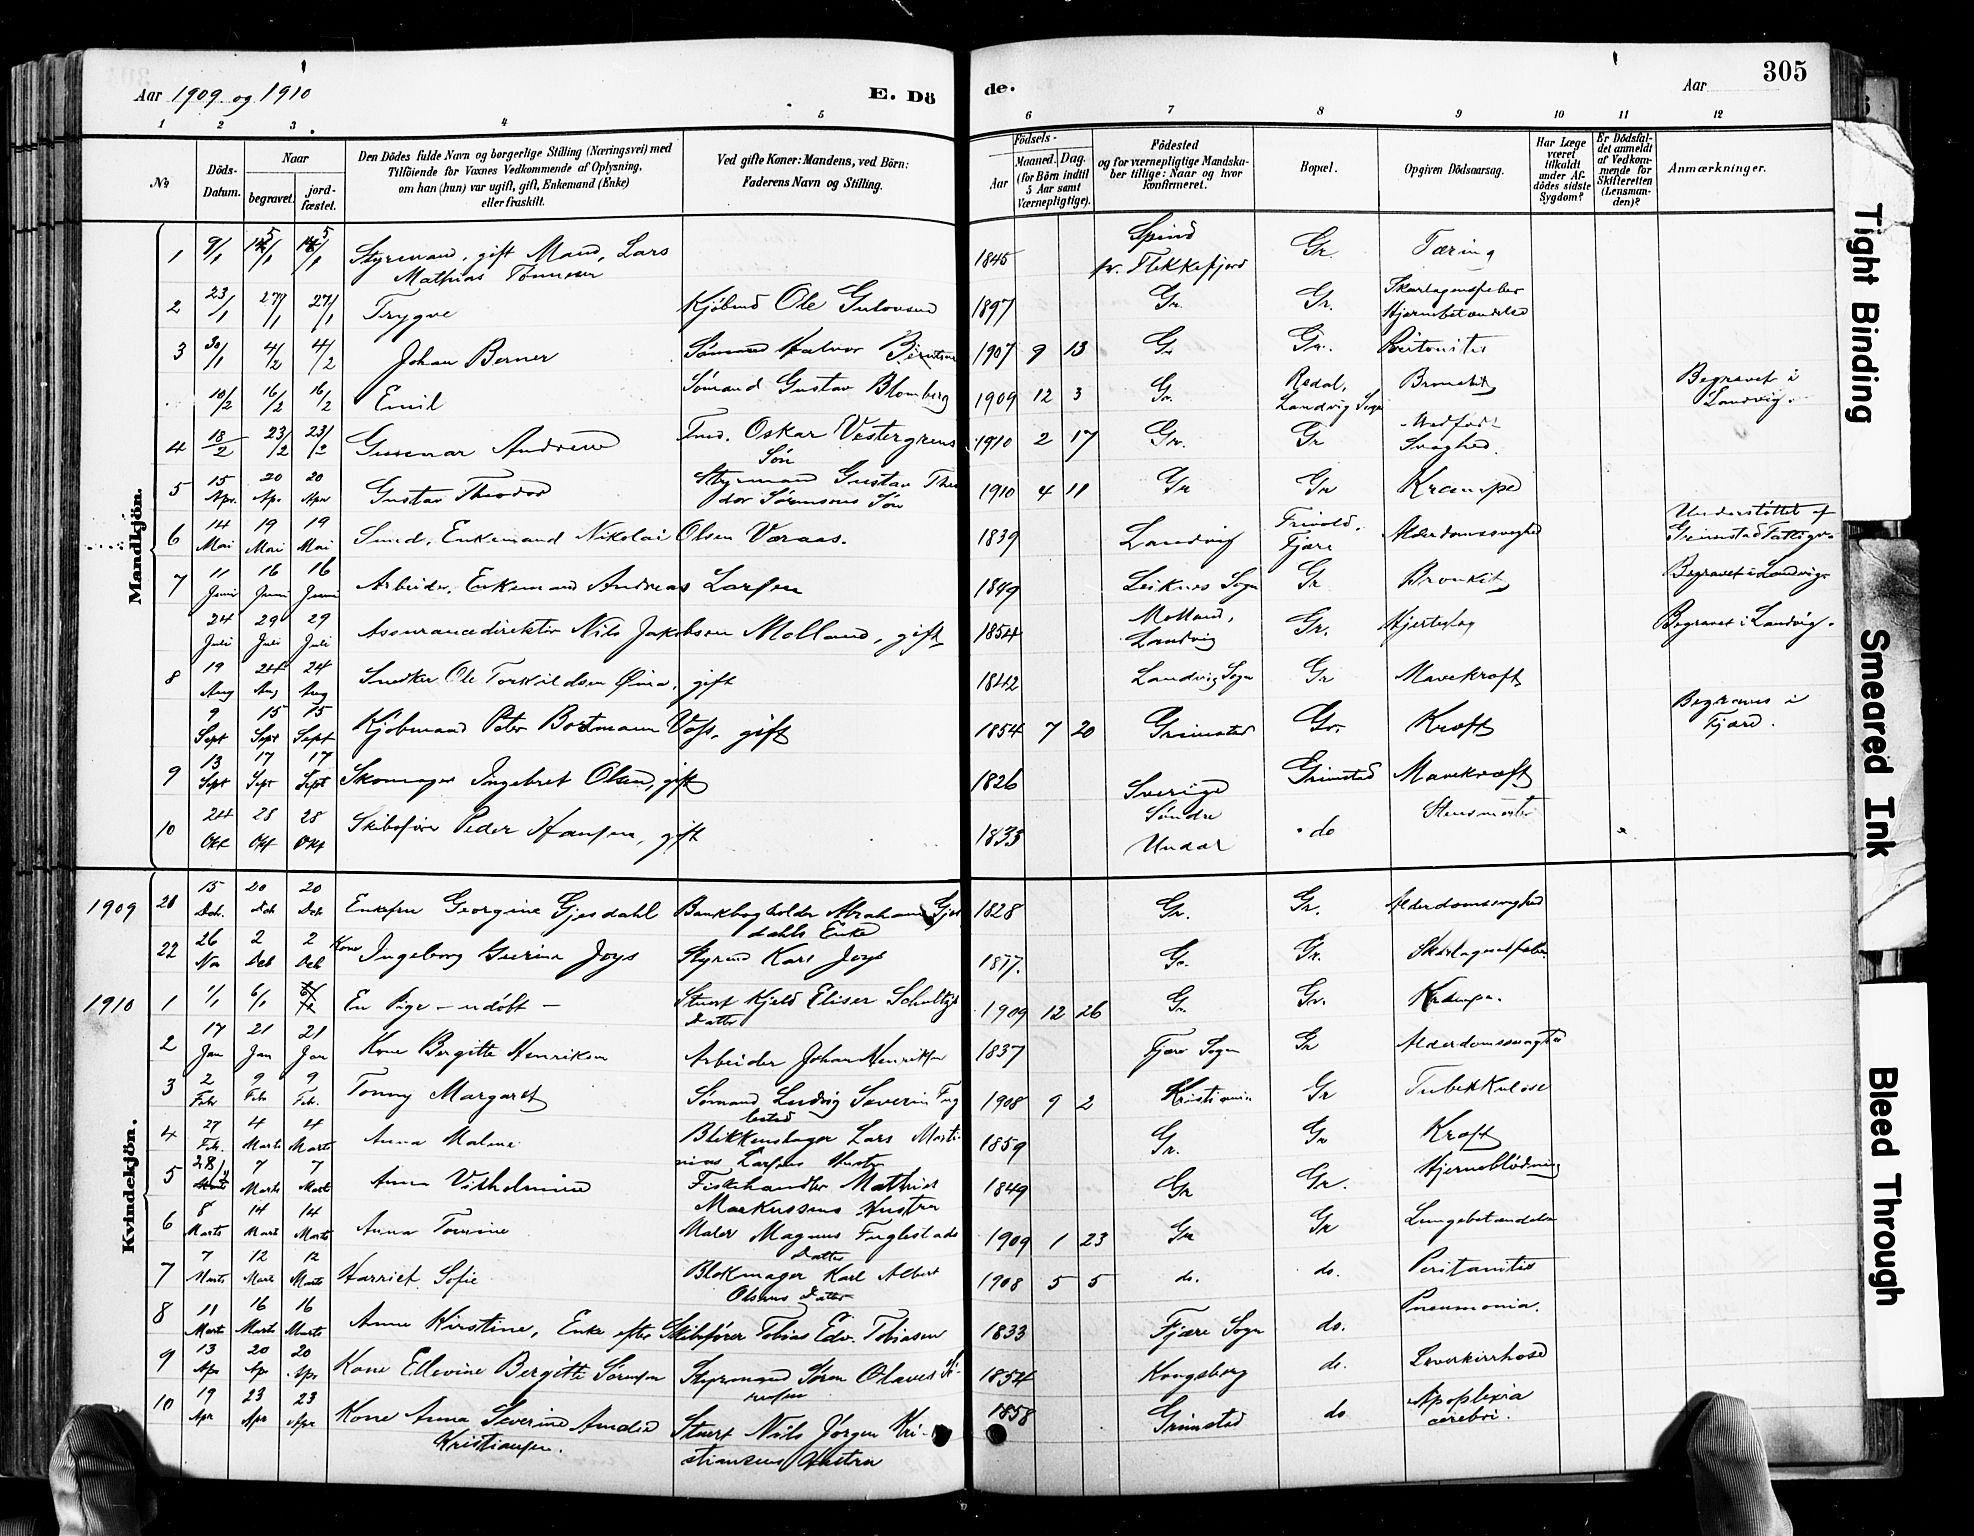 305
Aar 1909 og 1910
E. Dö
de.
Aar
1 2 3 4 5 6 7 8 9 10 11 12
№
Döds-Datum.
Naar
begravet.
jord-fæstet.
Den Dödes fulde Navn og borgerlige Stilling (Næringsvei) med
Tilföiende for Voxnes Vedkommende af Oplysning,
om han (hun) var ugift, gift, Enkemand (Enke)
eller fraskilt.
Ved gifte Koner: Mandens, ved Börn:
Faderens Navn og Stilling.
Födsels-
Aar
Maaned. Dag.
(for Börn indtil
5 Aar samt
Værnepligtige).
Födested
og for værnepligtige Mandska-
ber tillige: Naar og hvor
konfirmeret.
Bopæl.
Opgiven Dödsaarsag.
Har Læge
været
tilkaldt
under Af-
dödes sidste
Sygdom?
Er Dödsfal-
det anmeldt
af Vedkom-
mende for
Skifteretten
(Lensman-
den)?
Anmærkninger.
Mandkjön.
1 9/1 Styrmand, gift Mand, Lars Mathias Tønnesen 1845 Spind pr. Flekkefjord Gr. Tæring
2 23/1 27/1 27/1 Trygve Kjøbmd Ole Gulovsen 1897 Gr. Gr. Skarlagensfeber Hjernebetændelse
3 30/1 4/2 4/2 Johan Berner Sømand Halvor 1907 9 13 Gr Gr. Peritonitis
10/2 16/2 16/2 Emil Sømand Gustav Blomberg 1909 12 3 Gr. Landvig Sogn Bronchit Begravet i Landvig.
4 18/2 23/2 23/2 Gunnar Andreas Oskar Vestergrens Søn 1910 2 17 Gr. Gr Medfødt Svaghed.
5 15 Apr. 20 Apr 20 Apr Gustav Theodor Styrmand Gustav Theodor Sørensens Søn 1910 4 11 Gr Gr Krampe
6 14 Mai 19 Mai 19 Mai Smed, Enkemand Nikolai Olsen Væraas. 1839 Landvig Frivold, Fjære Alderdomssvaghed Understøttet af Grimstad Fattigv.
7 11 Juni 16 Juni 16 Juni Arbeider, Enkemand Andreas Larsen 1849 Sogn Gr Bronkit Begravet i Landvig
24 Juli 29 Juli 29 Juli Assurancedirektør Nils Jakobsen Molland, gift 1854 Molland, Landvig Gr. Hjerteslag Begravet i Landvig.
8 19 Aug 24 Aug 24 Aug Snedker Ole Torkildsen gift 1842 Landvig Sogn Gr Mavekræft
9 Sept 15 Sept 15 Sept Kjøbmand Peter Voss, gift 1854 7 20 Grimstad Gr. Kræft Begraves i Fjære.
9 13 Sept 17 Sept 17 Sept Skomager Ingebret Olsen, gift 1826 Sverige Grimstad Mavekræft
10 24 Okt 28 Okt 28 Okt Skibsfører Peder Hansen, gift 1833 Søndre Undal do
Kvindekjön.
1909 21 15 Dcb. 20 Dcb 20 Dcb Enkefru Georgine Gjesdahl Bankbogholder Abraham Gjesdahls Enke 1828 Gr. Gr. Alderdomssvaghed
22 26 Nov 2 Dcb 2 Dcb Kone Ingeborg Joys Styrmd Karl Joys 1877. Gr. Gr. Skarlagensfeber
1910 1 1/1 6/1 En Pige – udøbt – Stuert Kjeld Eliser Datter 1909 12 26 Gr. Gr. Krampe.
2 17 Jan 21 Jan 21 Jan Kone Bergitte Henriksen Arbeider Johan Henriksen 1837 Fjære Sogn Gr Alderdomssvaghed
3 2 Febr 9 Febr 9 Febr. Tonny Margaret Sømand Ludvig Severin Fuglested 1908 9 2 Kristiania Gr Tuberkulose
4 27 Febr. 4 Marts 4 Marts Anna Malene Blikkenslager Lars Martinius Larsens Hustru 1859 Gr. Gr Kræft
5 28/ 7 Marts 7 Marts Anna Vilhelmine Fiskehandler Mathias Markussens Hustru 1849 Gr Gr. Hjerneblødning
6 8 Marts 14 Marts 14 Marts Anna Tomine Maler Magnus Fuglestads Datter 1909 1 23 Gr Gr Lungebetændelse
7 7 Marts 12 Marts 12 Marts Harriet Sofie Blokmager Karl Albert Olsens Datter 1908 5 5 do. do. Peritonitis
8 11 Marts 16 Marts 16 Marts Anne Kirstine, Enke efter Skibsfører Tobias Edv. Tobiasen 1833 Fjære Sogn do. Pneumonia.
9 13 Apr 20 Apr 20 Apr Kone Edevine Bergitte Sørensen Styrmand Søren Olaves Sørensen 1854 Kongsberg do. Levercirrhose
10 19 Apr 23 Apr 23 Apr Kone Anna Severine Amalie Kristiansen. Stuert Nils Jørgen Kristiansens Hustru 1858 Grimstad do Apoplexia cerebri.
Tight Binding
Smeared Ink
Bleed Through